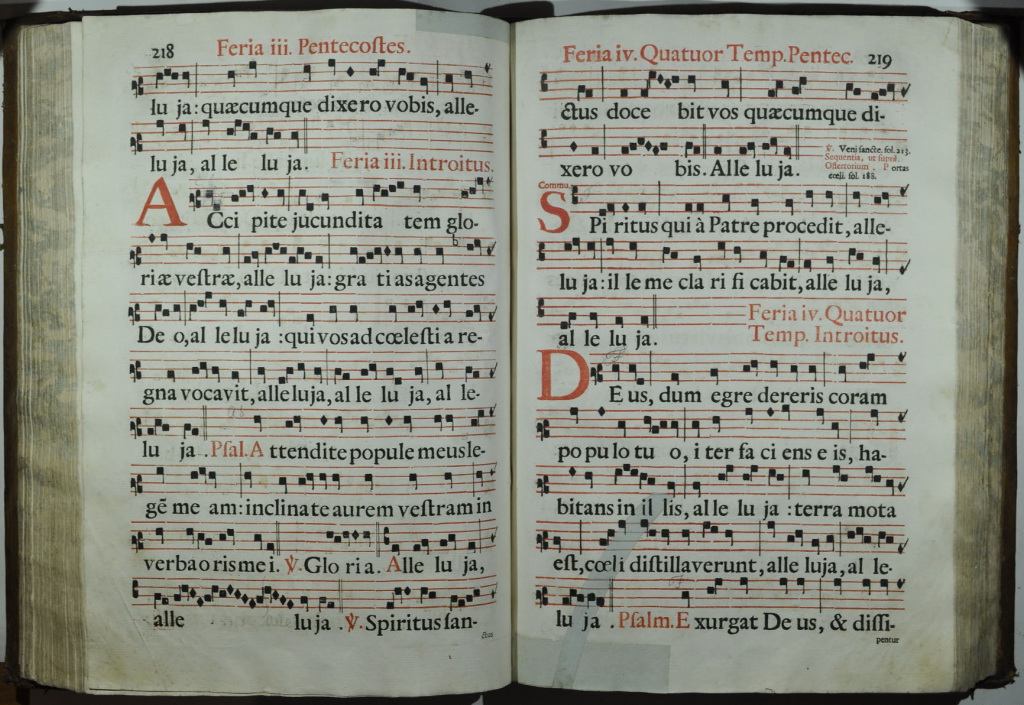 218 Feria iii. Pentecoſtes.
lu ja: quæcumque dixero vobis, alle-
lu ja, al le lu ja. Feria iii. Introitus.
ACci pite jucundita tem glo-
riæ veſtræ, alle lu ja: gra ti as agentes
De o, al le lu ja : qui vos ad cœleſti a re-
gna vocavit, alleluja, al le lu ja, al le-
lu ja . Pſal. A ttendite popule meus le-
gẽ me am: inclinate aurem veſtram in
verba oris me i. ℣. Glo ri a. Alle lu ja,
alle lu ja . ℣. Spiritus ſan-
Feria iv. Quatuor Temp. Pentec. 219
ctus doce bit vos quæcumque di-
xero vo bis. Alle lu ja.
℣. Veni ſancte. fol. 213.
Sequentia, ut ſupra.
Offertorium. Portas
cœli. fol. 188.
Commu.
SPi ritus qui à Patre procedit, alle-
lu ja: il le me cla ri fi cabit, alle lu ja,
al le lu ja.
Feria iv. Quatuor
Temp. Introitus.
DE us, dum egre dereris coram
po pu lo tu o, i ter fa ci ens e is, ha-
bitans in il lis, alle lu ja : terra mota
eſt, cœli diſtillaverunt, alle luja, al le-
lu ja . Pſalm. E xurgat De us, & diſſi-
pentur